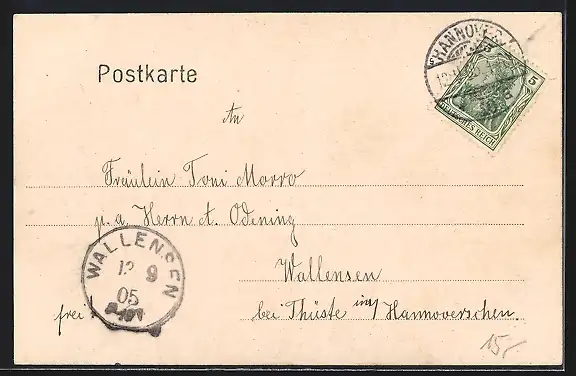 HANNOVER
5
DEUTSCHES REICH
Postkarte
An
Fräulein Toni Morro
p. a. Herrn A. Odening
Wallensen
bei Thüste im Hannoverschen.
WALLENSEN
12 9
05
frei!
15,-